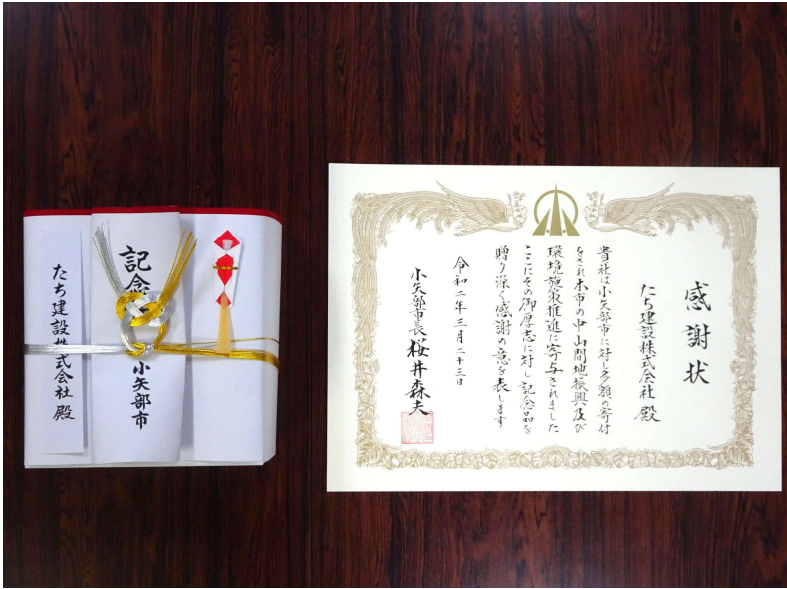 感謝状
たち建設株式会社 殿
貴社は小矢部市に対し多額の寄付
をされ本市の中山間地振興及び
環境施策推進に寄与されました
ここにその御厚志に対し記念品を
贈り深く感謝の意を表します
令和二年三月二十三日
小矢部市長 桜井森夫
記念
小矢部市
たち建設株式会社 殿